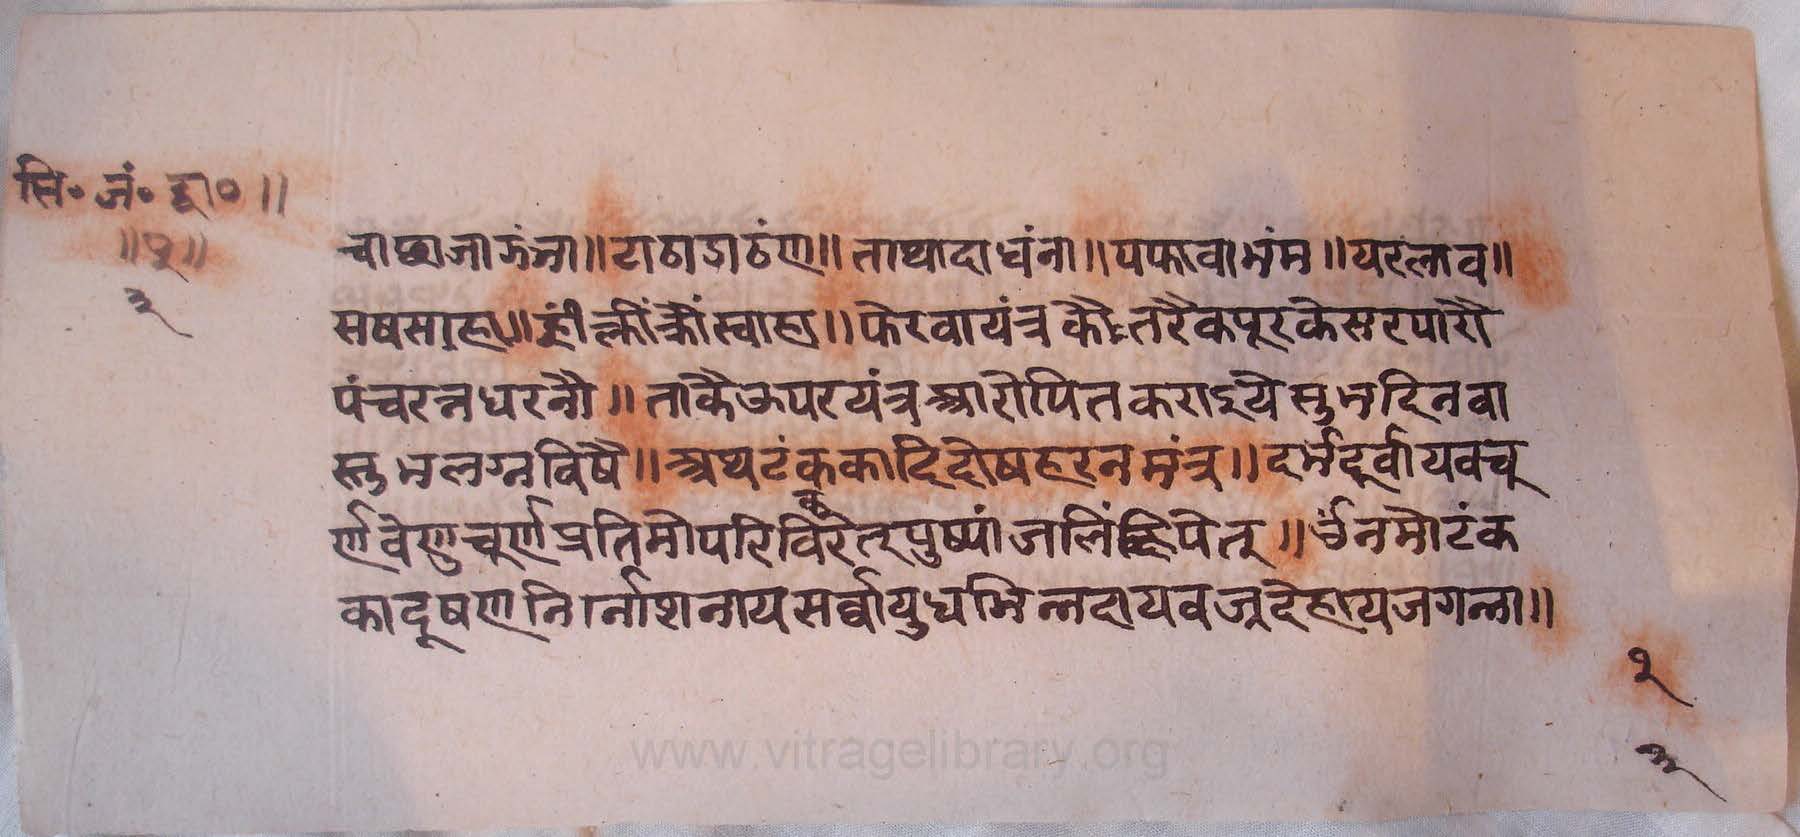 सि॰ जं॰ ह्रा॰ ॥
॥१॥
३
चाछाजाझंञा॥ टाठाडाढंण॥ ताथादाधंना॥ पफावाभंम॥ यरलाव॥
सषसाहा॥ ह्रीं क्लीं क्रौं स्वाहा॥ फेरवायंत्रकौ तरैकपूरकेसरपारौ
पंचरत्नधरनौ॥ ताकैऊपरयंत्रआरोपितकराइये सुभदिनवा
सुभलग्नविषै॥ अथटंककादिदोषहरनमंत्र॥ दर्भदूर्वायवचू
र्णवेणुचूर्णप्रतिमोपरिविकिरेत्पुष्पांजलिंक्षिपेत्॥ ॐनमोटंक
कादूषणनिर्नाशनायसर्वायुधभिन्नदायवज्रदेहायजगन्ना॥
१
३
www.vitragelibrary.org